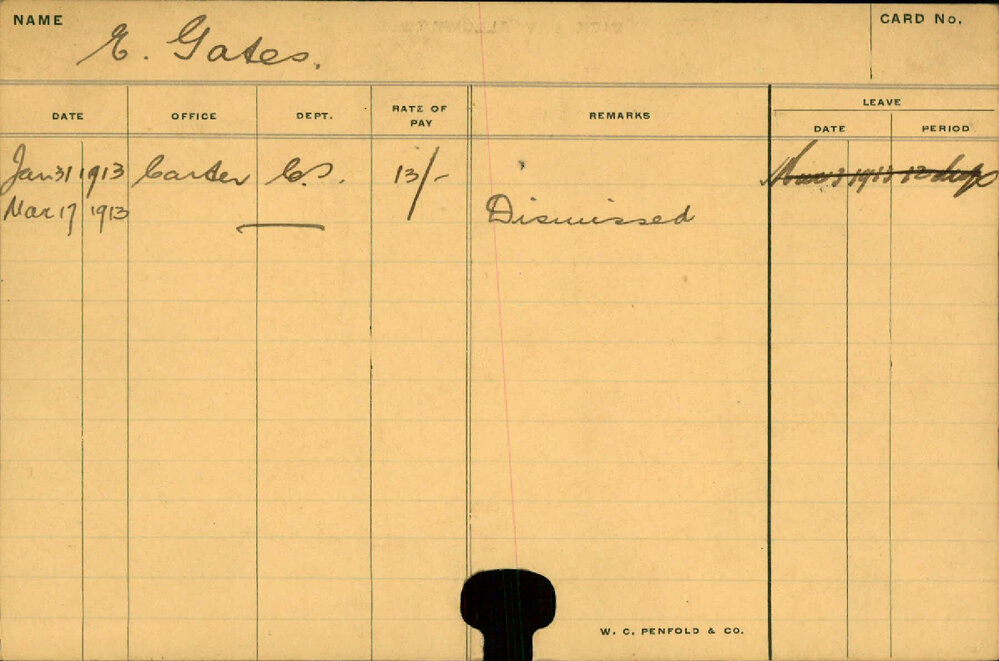 NAME E. Gates. CARD No.
DATE OFFICE DEPT. RATE OF PAY REMARKS LEAVE
DATE PERIOD
Jan 31 1913 Carter C.S. 13/- 1913 12 days
Mar 17 1913 Dismissed
W. C. PENFOLD & CO.